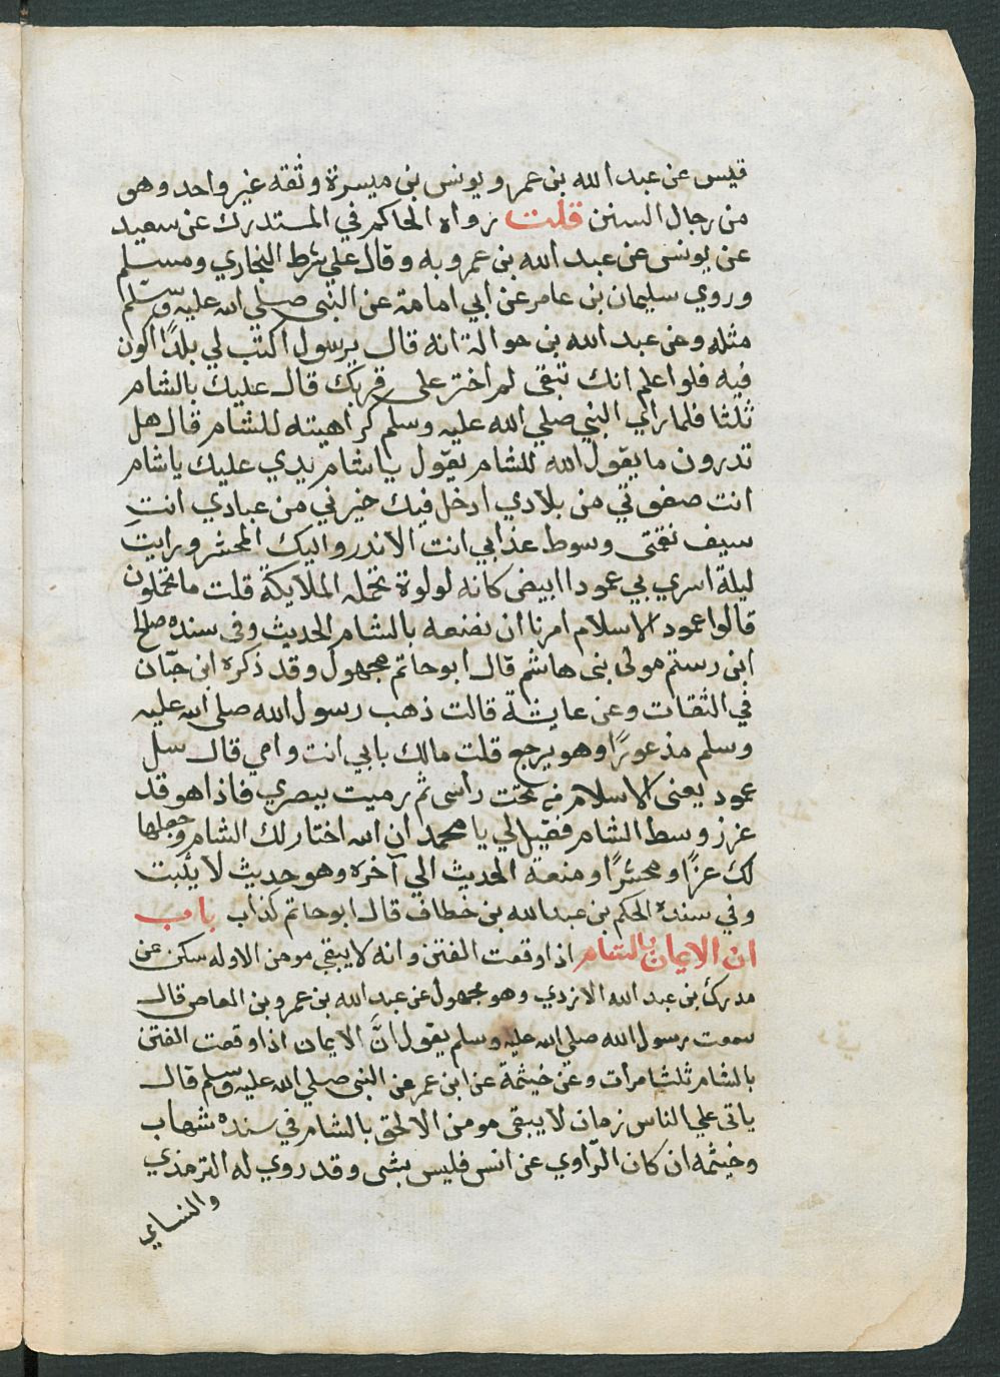 قيس عن عبد الله بن عمرو ويونس بن ميسرة وثقه غير واحد وهو
من رجال السنن قلت رواه الحاكم في المستدرك عن سعيد
عن يونس عن عبد الله بن عمرو به وقال علي شرط البخاري ومسلم
وروي سليمان بن عامر عن ابي امامة عن النبي صلي الله عليه وسلم
مثله وعن عبد الله بن حوالة انه قال يرسول اكتب لي بلدًا اكون
فيه فلو اعلم انك تبقى لم اختر على قربك قال عليك بالشام
ثلثا فلما راي النبي صلي الله عليه وسلم كراهيته للشام قال هل
تدرون ما يقول الله للشام يقول يا شام يدي عليك يا شام
انت صفوتي من بلادي ادخل فيك خيرتي من عبادي انت
سيف نقمتي وسوط عذابي انت الاندر واليك المحشر ورايت
ليلة اسري بي عمودا ابيض كانه لولوة تحمله الملايكة قلت ما تحملون
قالوا عمود الاسلام امرنا ان نضعه بالشام الحديث وفي سنده صالح
ابن رستم مولى بني هاشم قال ابو حاتم مجهول وقد ذكره ابن حبّان
في الثقات وعن عايشة قالت ذهب رسول الله صلي الله عليه
وسلم مذعورًا وهو يرجع قلت مالك بابي انت وامي قال سل
عمود يعنى الاسلام من تحت راسي ثم رميت ببصري فاذا هو قد
غرز وسط الشام فقيل لي يا محمد ان الله اختار لك الشام وجعلها
لك عزًّا ومحشرًا ومنعة الحديث الي آخره وهو حديث لا يثبت
وفي سنده الحكم بن عبد الله بن خطاف قال ابو حاتم كذاب باب
ان الايمان بالشام اذا وقعت الفتن وانه لا يبقي مومن الا وله سكن عن
مدرك بن عبد الله الازدي وهو مجهول عن عبد الله بن عمرو بن العاص قال
سمعت رسول الله صلي الله عليه وسلم يقول انَّ الايمان اذا وقعت الفتن
بالشام ثلث مرات وعن خيثمة عن ابن عمر عن النبي صلي الله عليه وسلم قال
ياتى علي الناس زمان لا يبقى مومن الا لحق بالشام في سنده شهاب
وخيثمه ان كان الرّاوي عن انس فليس بشى وقد روي له الترمذي
والنساي